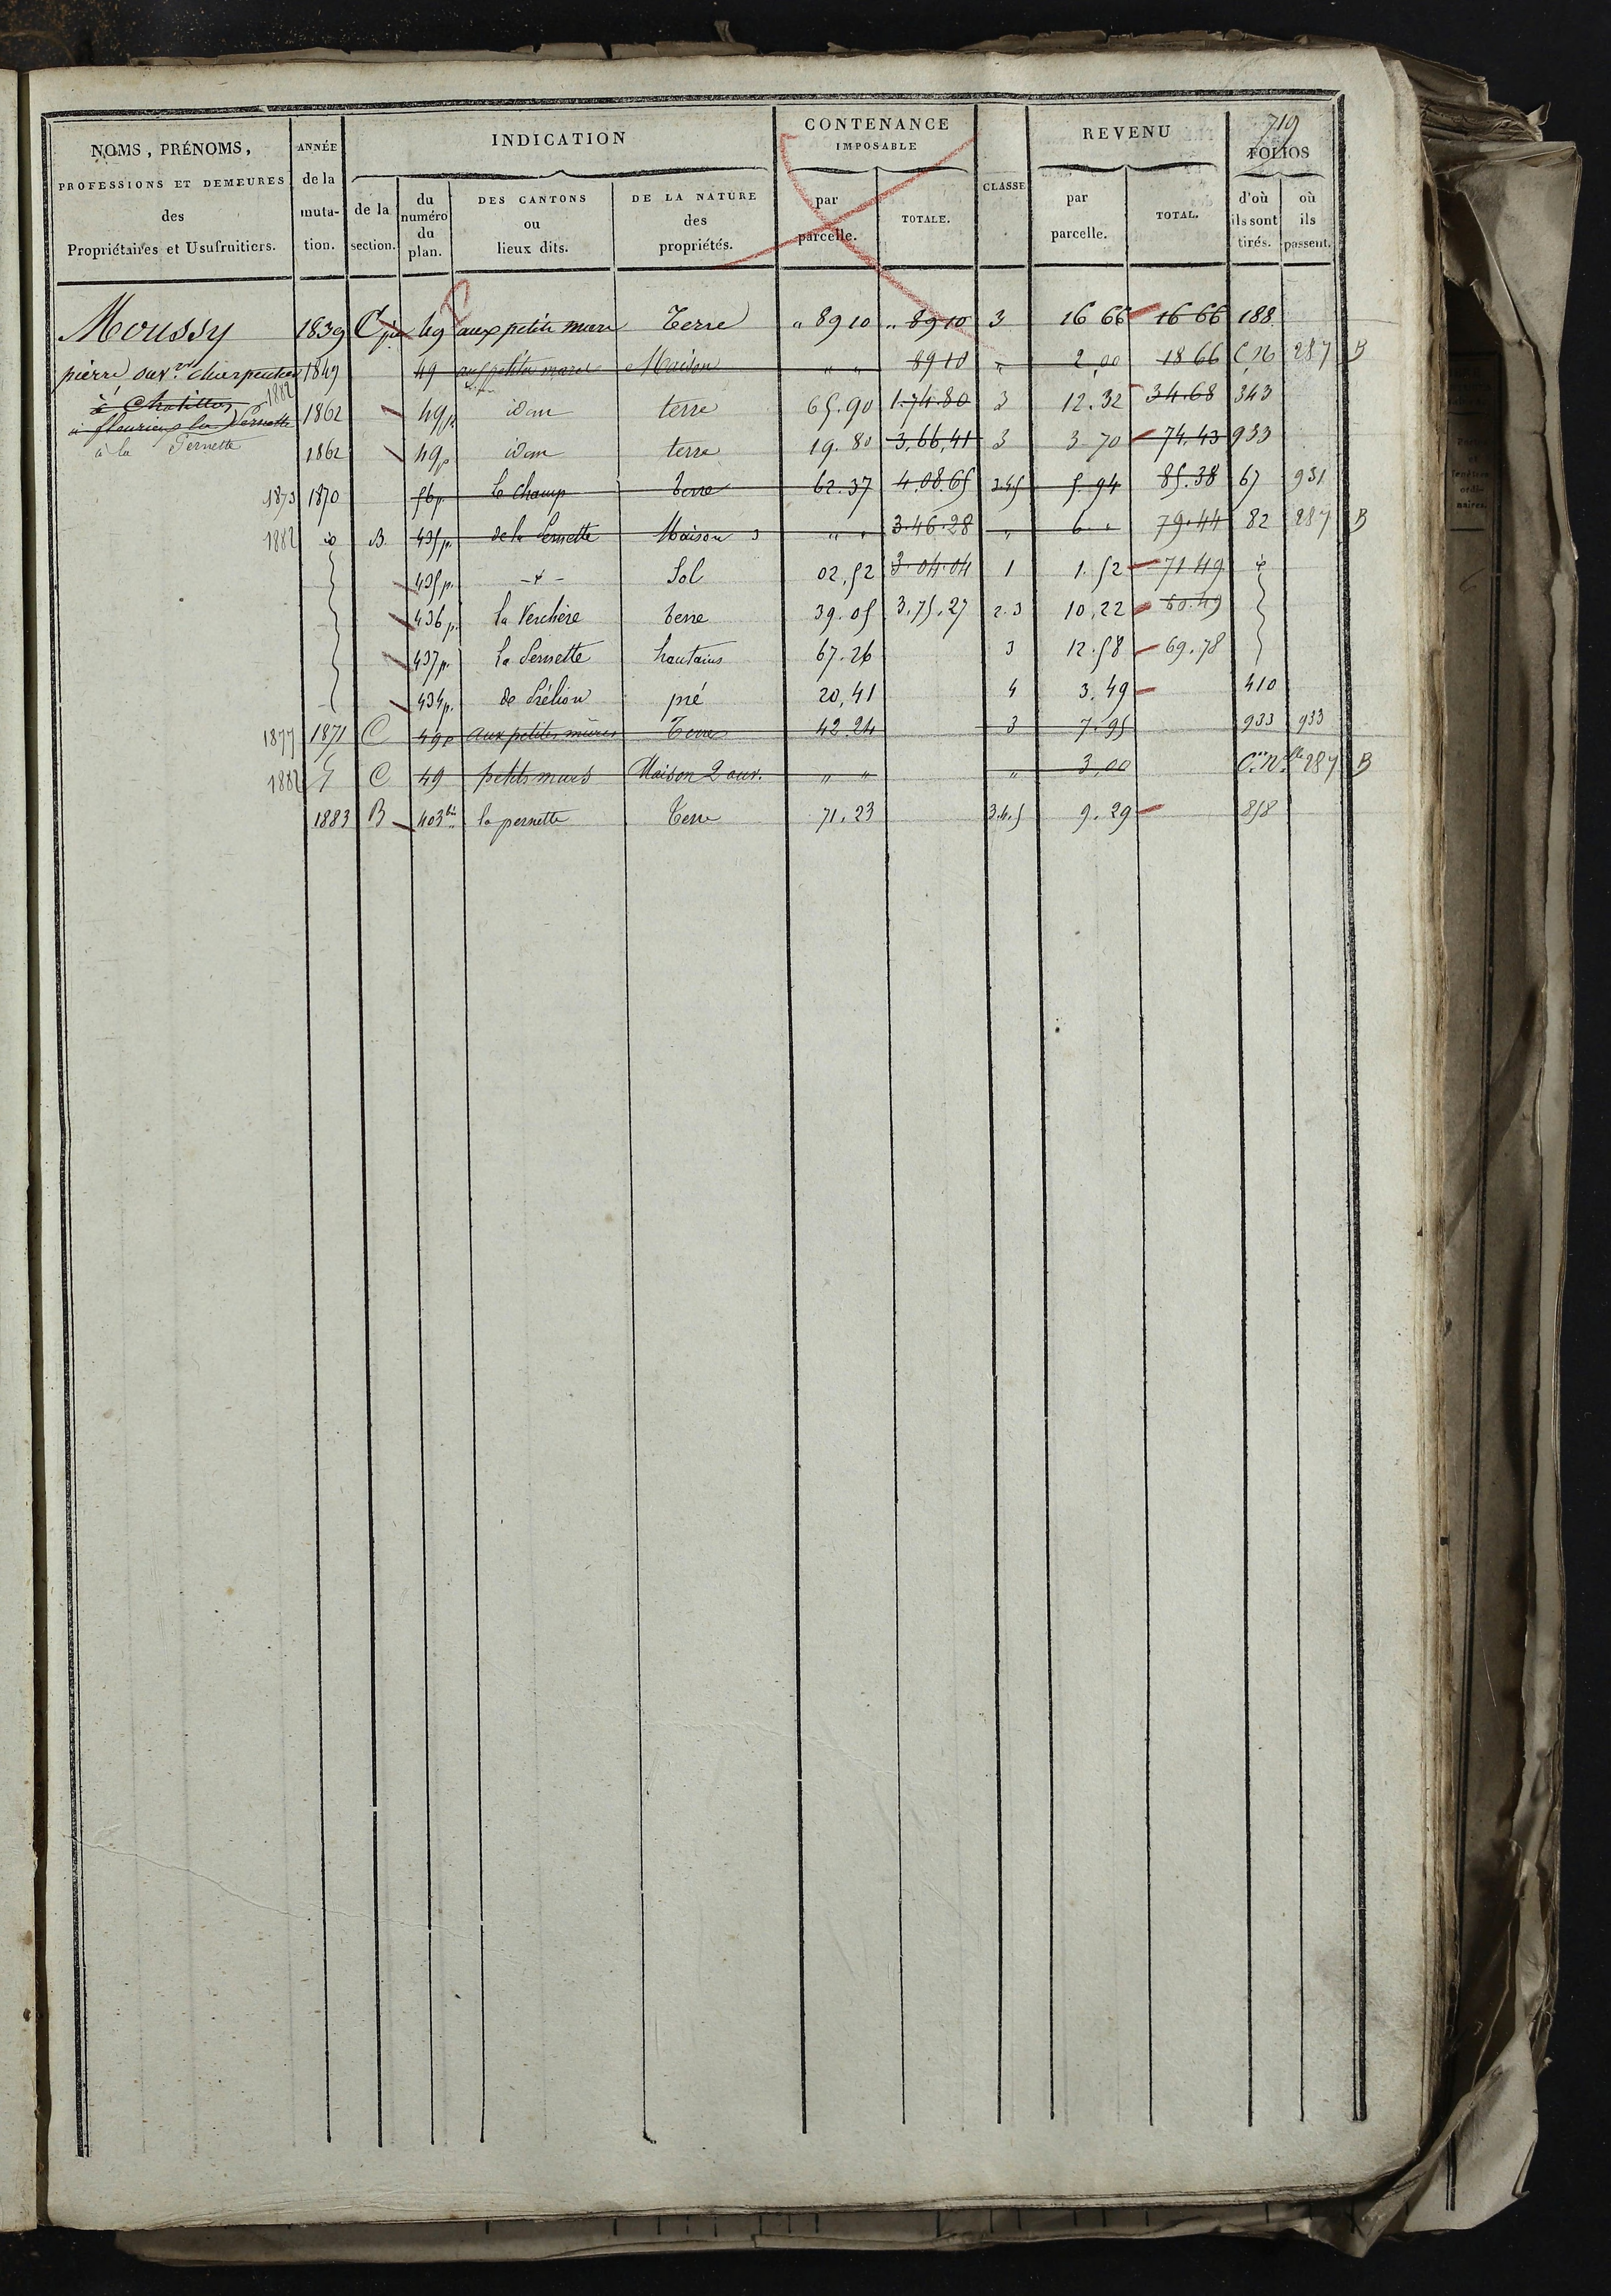 719
NOMS, PRÉNOMS, PROFESSIONS ET DEMEURES des Propriétaires et Usufruitiers.
ANNÉE de la muta- tion.
INDICATION
de la section.
du numéro du plan.
DES CANTONS ou lieux dits.
DE LA NATURE des propriétés.
CONTENANCE IMPOSABLE
par parcelle.
TOTALE.
CLASSE
REVENU
par parcelle.
TOTAL.
FOLIOS
d'où ils sont tirés.
où ils passent.
Moussy 1839 C 49 aux petits murs Terre " 89 10 " 89 10 3 16 66 16 66 188
pierre ouv. charpentier 1849 49 aux petits murs Maison " " 89 10 " 2,00 18 66 C N 287 B
à Chatillon 1882 1862 49p idem terre 65.90 1.74.80 3 12.32 34.68 343
à fleurieux la Pernette
à la Pernette 1862 49p idem terre 19.80 3,66,41 3 3 70 74.43 933
1873 1870 56p. le Champ terre 62.37 4.08.65 3.4.5 5.94 85.38 67 931
1882 d° B 435p. de la Pernette Maison " " 3.46.28 " 6 " 79.44 82 287 B
435p. - d° - Sol 02,52 3.04.04 1 1.52 71 49 d°
436p. la Verchère terre 39.05 3,75,27 2.3 10,22 60.49
437p. la Pernette hautains 67.26 3 12.58 69.78
434p. de Prélion pré 20,41 4 3.49 410
1877 1871 C 49p aux petites mures Terre 42.24 3 7.95 933 933
1882 7 C 49 petits murs Maison 2 ouv. " " " 3,00 C.on N.lle 287 B
1883 B 403bis la pernette Terre 71.23 3.4.5 9.29 858